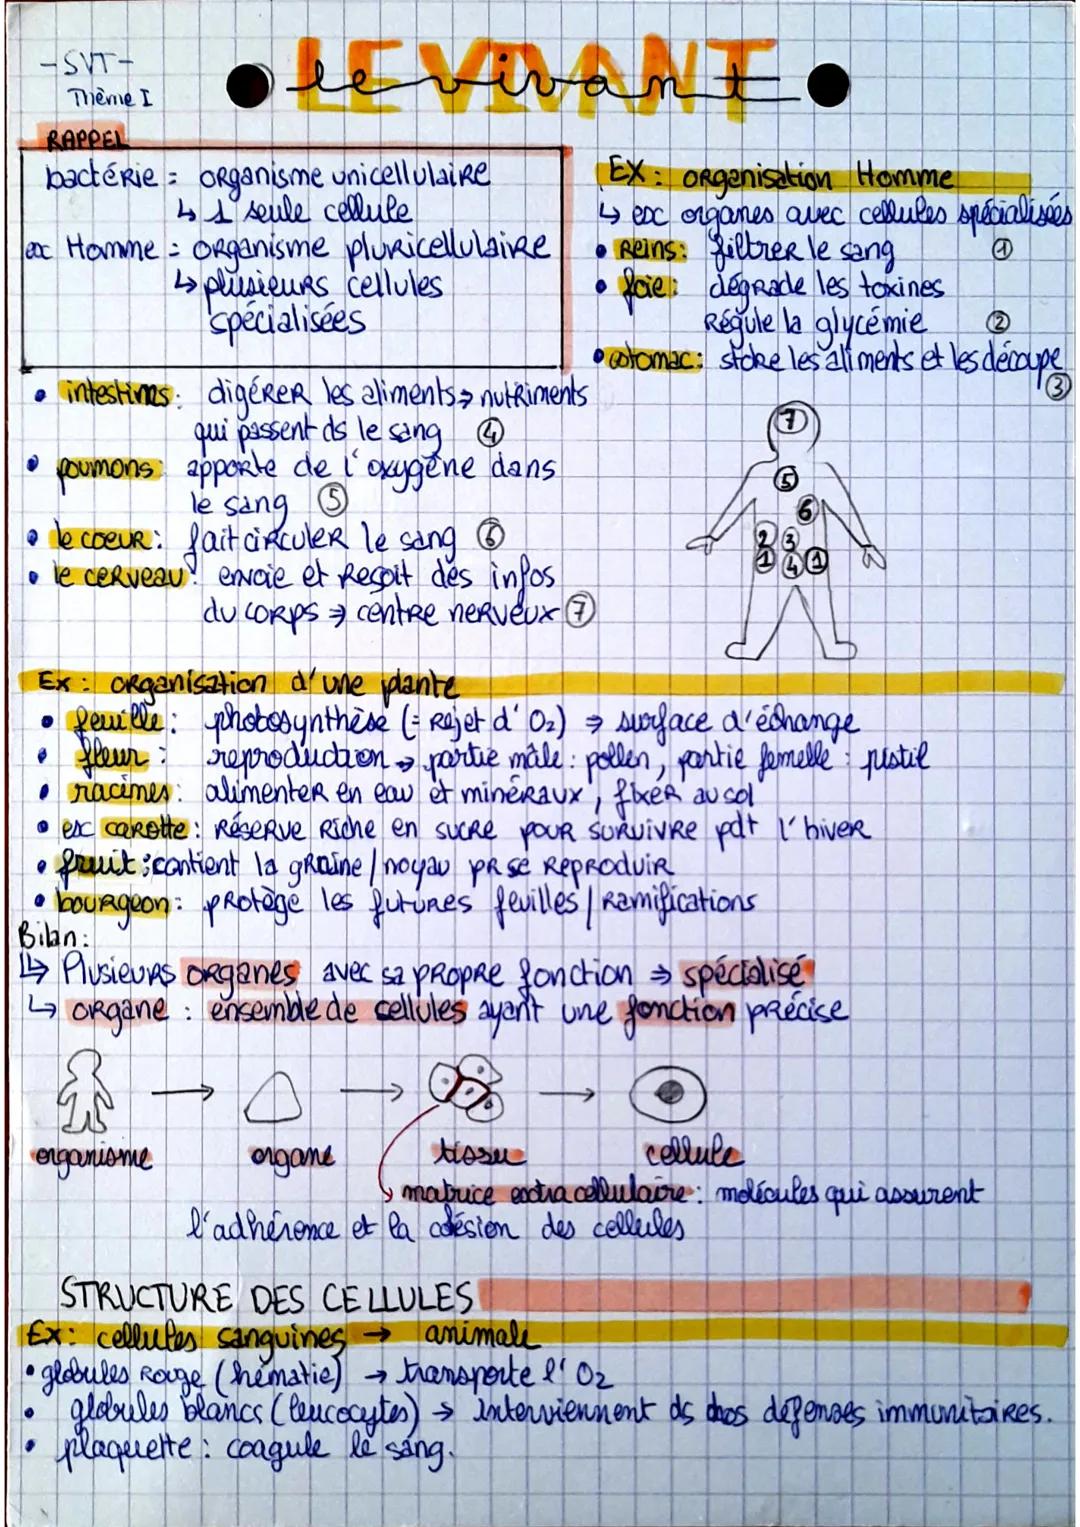 -SVT-
Thème I
LE VIVANT
le vivant
RAPPEL
bactérie = organisme unicellulaire
↳ 1 seule cellule
ex Homme = organisme pluricellulaire
↳ plusieurs cellules
spécialisées
EX : organisation Homme
↳ ex organes avec cellules spécialisées
• Reins : filtrer le sang ①
• foie : dégrade les toxines
Régule la glycémie ②
• estomac : stoke les aliments et les découpe
③
• intestins : digérer les aliments → nutriments
qui passent ds le sang ④
• poumons : apporte de l'oxygène dans
le sang ⑤
• le coeur : fait circuler le sang ⑥
• le cerveau : envoie et reçoit des infos
du corps ⇒ centre nerveux ⑦
7
5
6
2 3
1 4 1
Ex : organisation d'une plante
• feuille : photosynthèse (= rejet d'O2) ⇒ surface d'échange
• fleur : reproduction → partie mâle : pollen, partie femelle : pistil
• racines : alimenter en eau et minéraux, fixer au sol
• ex carotte : réserve riche en sucre pour survivre pdt l'hiver
• fruit : contient la graine / noyau pr se reproduir
• bourgeon : protège les futures feuilles / ramifications
Bilan :
↳ Plusieurs organes avec sa propre fonction ⇒ spécialisé
↳ organe : ensemble de cellules ayant une fonction précise
organisme → organe → tissu → cellule
matrice extracellulaire : molécules qui assurent
l'adhérence et la cohésion des cellules
STRUCTURE DES CELLULES
Ex : cellules sanguines → animale
• globules rouge (hématie) → transporte l'O2
• globules blancs (leucocytes) → interviennent ds défenses immunitaires.
• plaquette : coagule le sang.